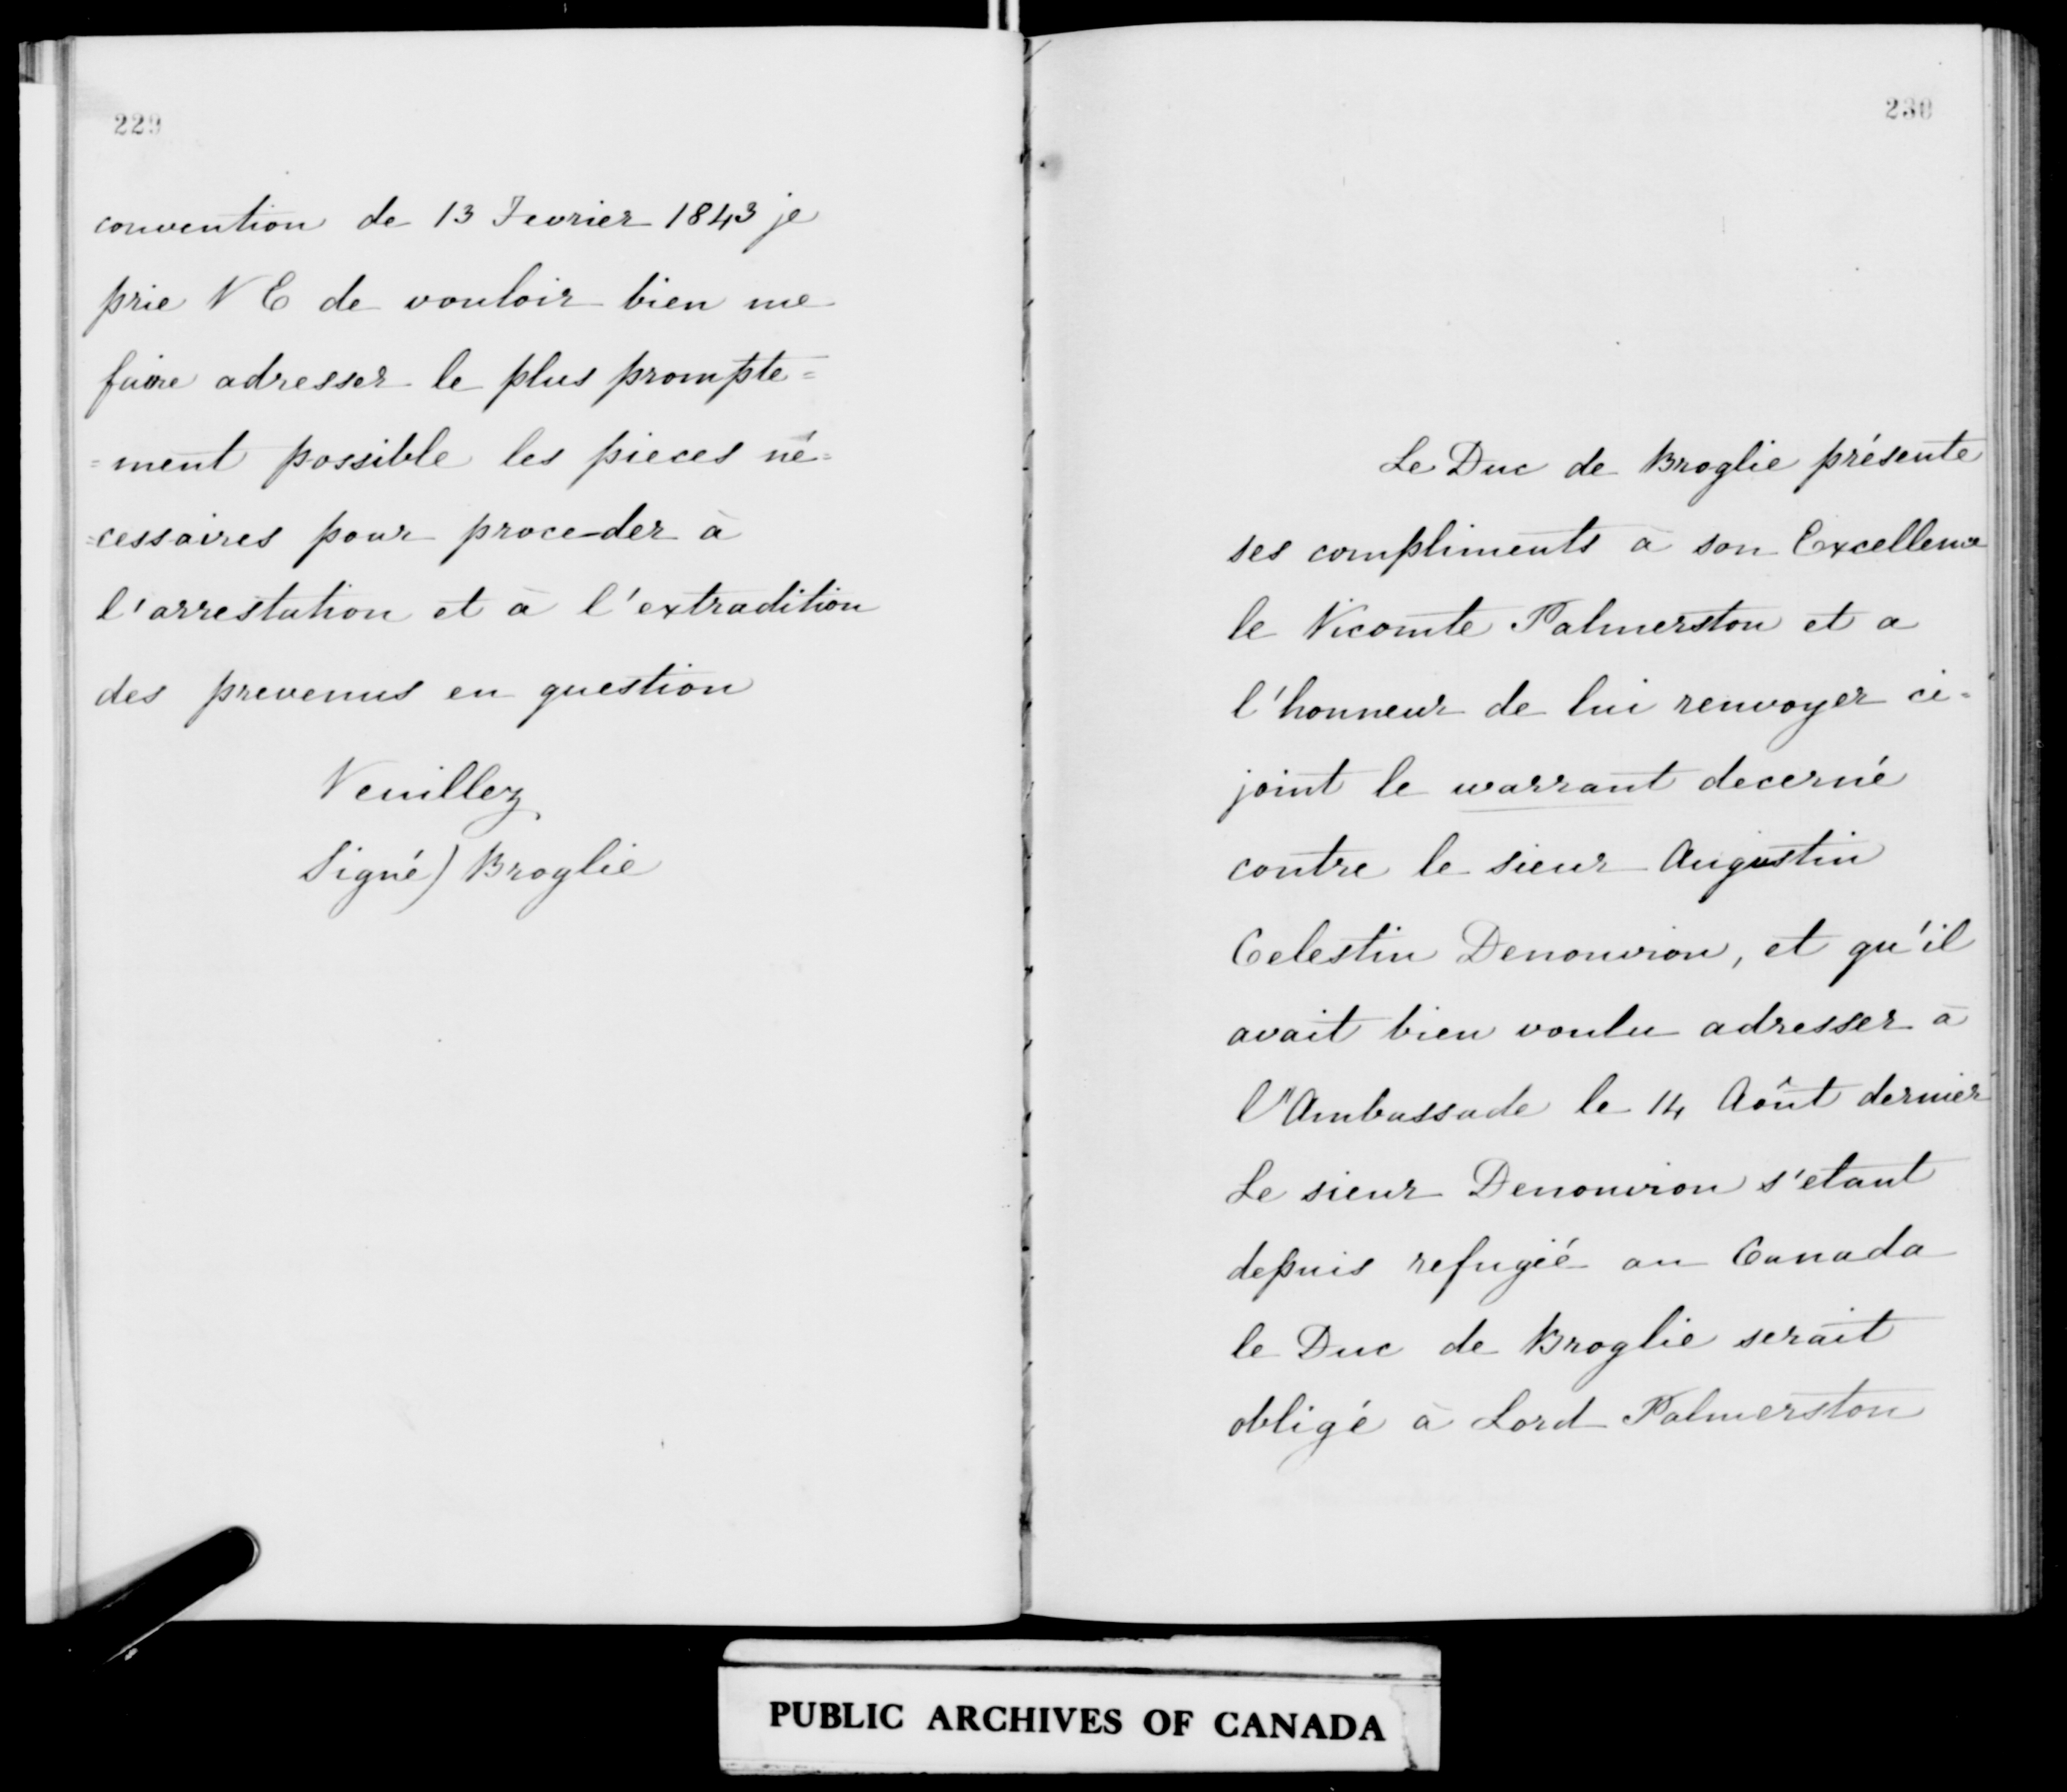 229
convention de 13 Fevrier 1843 je
prie V E de vouloir bien me
faire adresser le plus prompte=
=ment possible les pieces né=
=cessaires pour proceder à
l'arrestation et à l'extradition
des prevenus en question
Veuillez
Signé) Broglie
230
Le Duc de Broglie présente
ses compliments à son Excellence
le Vicomte Palmerston et a
l'honneur de lui renvoyer ci=
joint le warrant decerné
contre le sieur Augustin
Celestin Denouvion, et qu'il
avait bien voulu adresser à
l'Ambassade le 14 Août dernier
Le sieur Denouvion s'etant
depuis refugié au Canada
le Duc de Broglie serait
obligé à Lord Palmerston
PUBLIC ARCHIVES OF CANADA